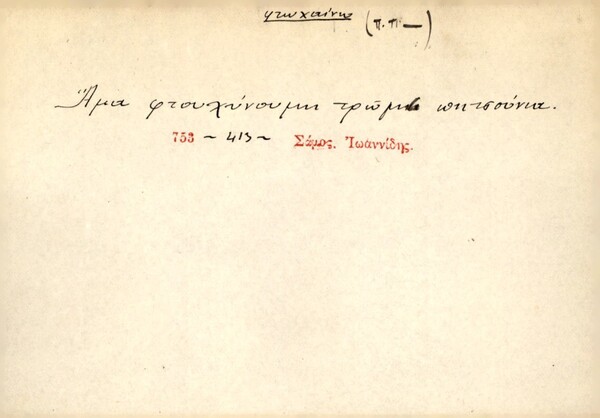 φτωχαίνω (π.π—)
Ἅμα φτουχύνουμι τρῶμι πιτσούνια.
753 ~ 413 ~ Σάμος. Ἰωαννίδης.